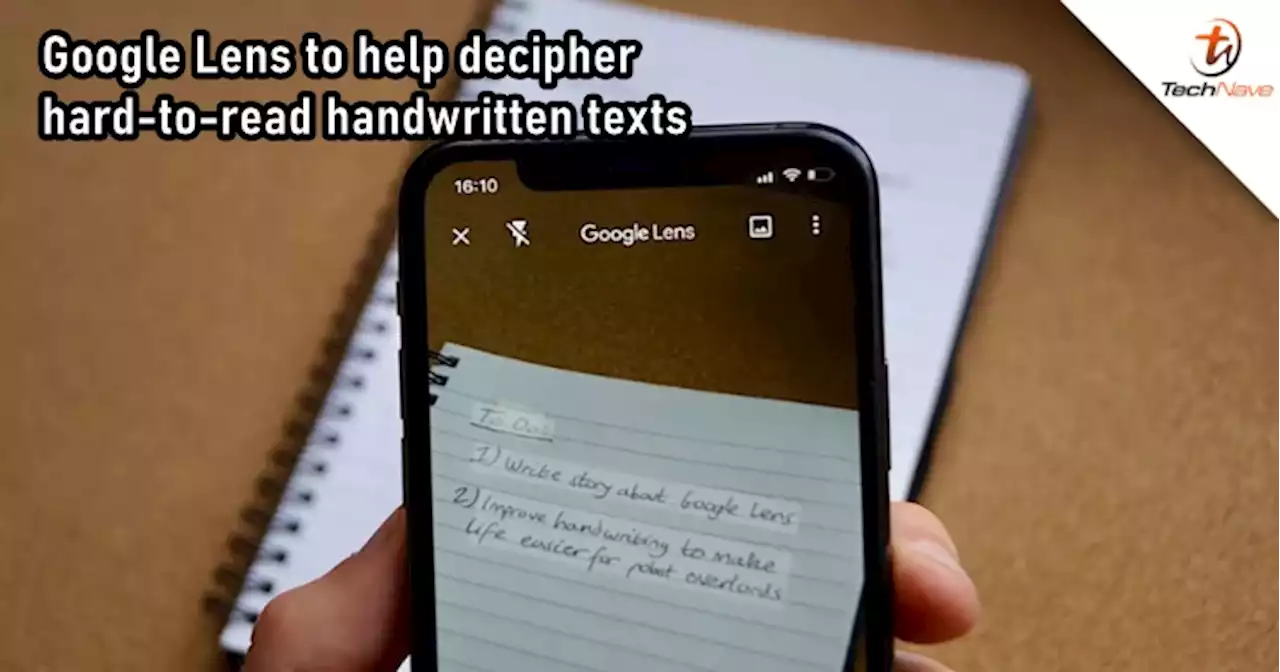 Google Lens to help decipher
hard-to-read handwritten texts
TechNave
16:10
Google Lens
To Do:
1) Write story about Google Lens
2) Improve handwriting to make
life easier for robot overlords